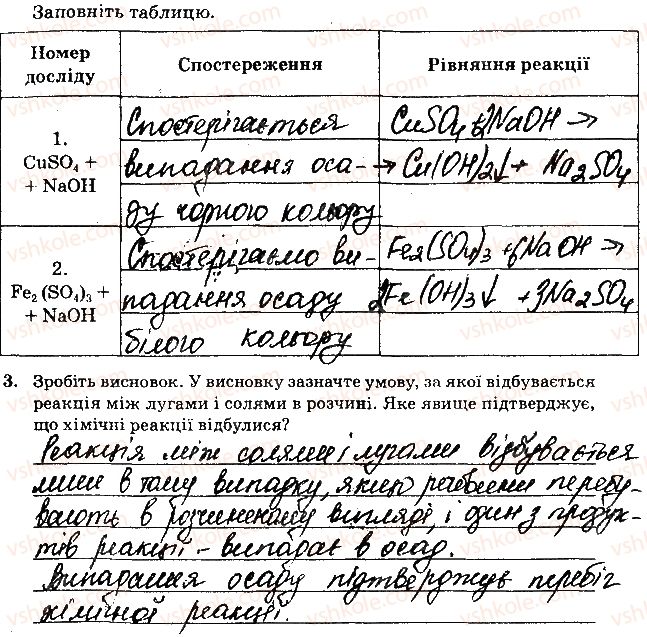 Заповніть таблицю.
Номер досліду
Спостереження
Рівняння реакції
1.
CuSO₄ +
+ NaOH
Спостерігається
випадання оса-
ду чорного кольору
CuSO₄ + 2NaOH →
→ Cu(OH)₂↓ + Na₂SO₄
2.
Fe₂(SO₄)₃ +
+ NaOH
Спостерігаємо ви-
падання осаду
білого кольору
Fe₂(SO₄)₃ + 6NaOH →
2Fe(OH)₃↓ + 3Na₂SO₄
3. Зробіть висновок. У висновку зазначте умову, за якої відбувається
реакція між лугами і солями в розчині. Яке явище підтверджує,
що хімічні реакції відбулися?
Реакція між солями і лугами відбувається
лише в тому випадку, якщо речовини перебу-
вають в розчиненому вигляді, і один з продук-
тів реакції - випадає в осад.
Випадання осаду підтверджує перебіг
хімічної реакції.